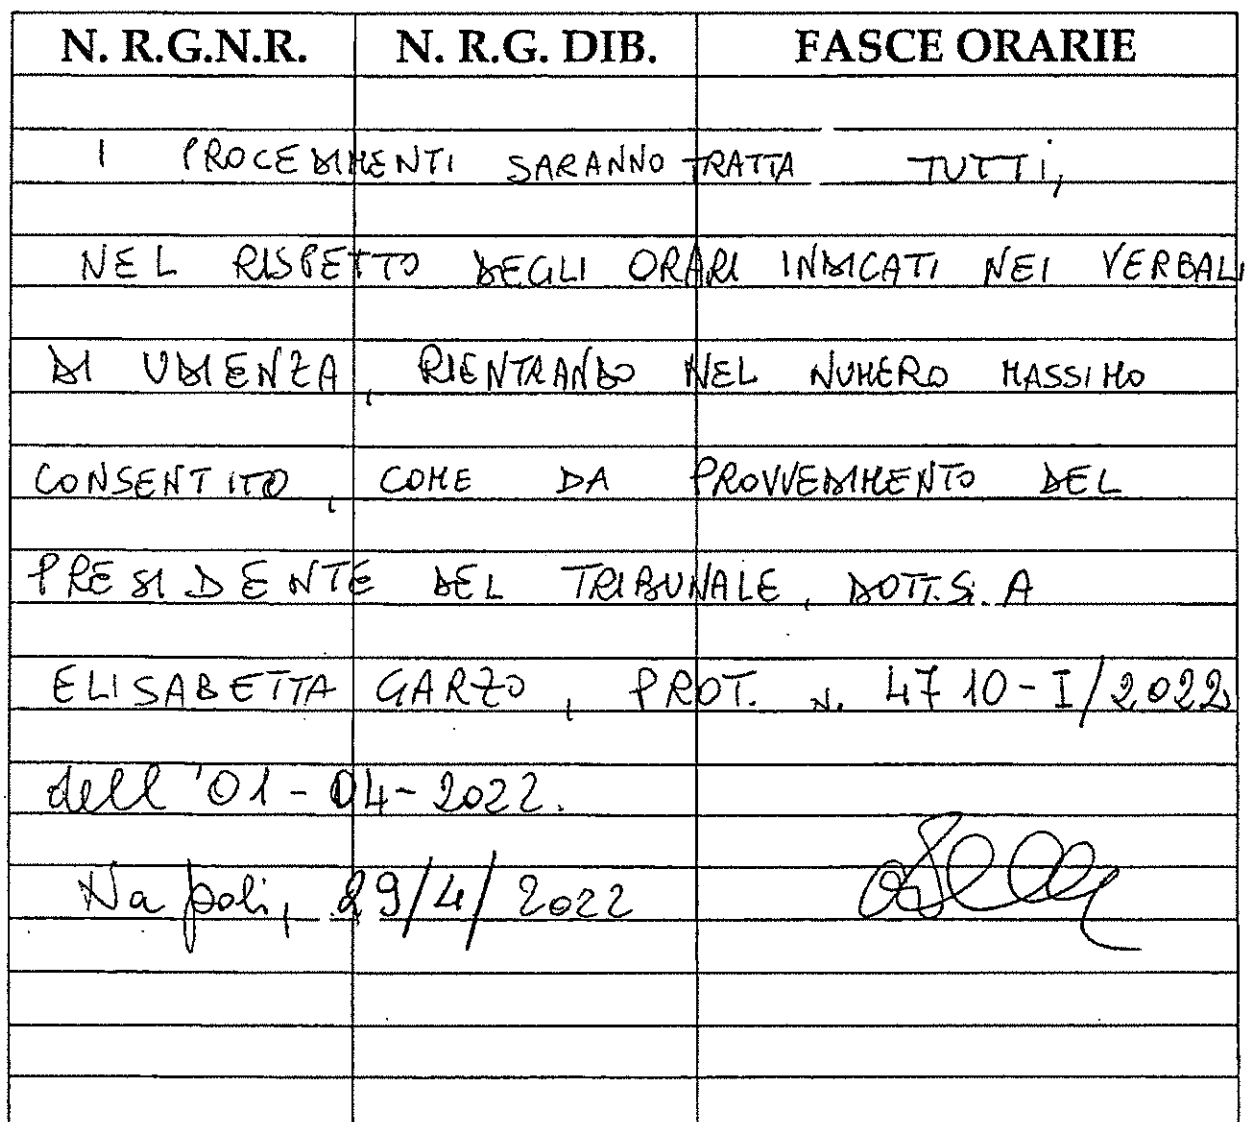 N. R.G.N.R. N. R.G. DIB. FASCE ORARIE
I PROCEDIMENTI SARANNO TRATTA TUTTI,
NEL RISPETTO DEGLI ORARI INDICATI NEI VERBALI
DI UDIENZA, RIENTRANDO NEL NUMERO MASSIMO
CONSENTITO, COME DA PROVVEDIMENTO DEL
PRESIDENTE DEL TRIBUNALE, DOTT.S.A
ELISABETTA GARZO, PROT. N. 4710-I/2022
dell'01-04-2022.
Napoli, 29/4/2022